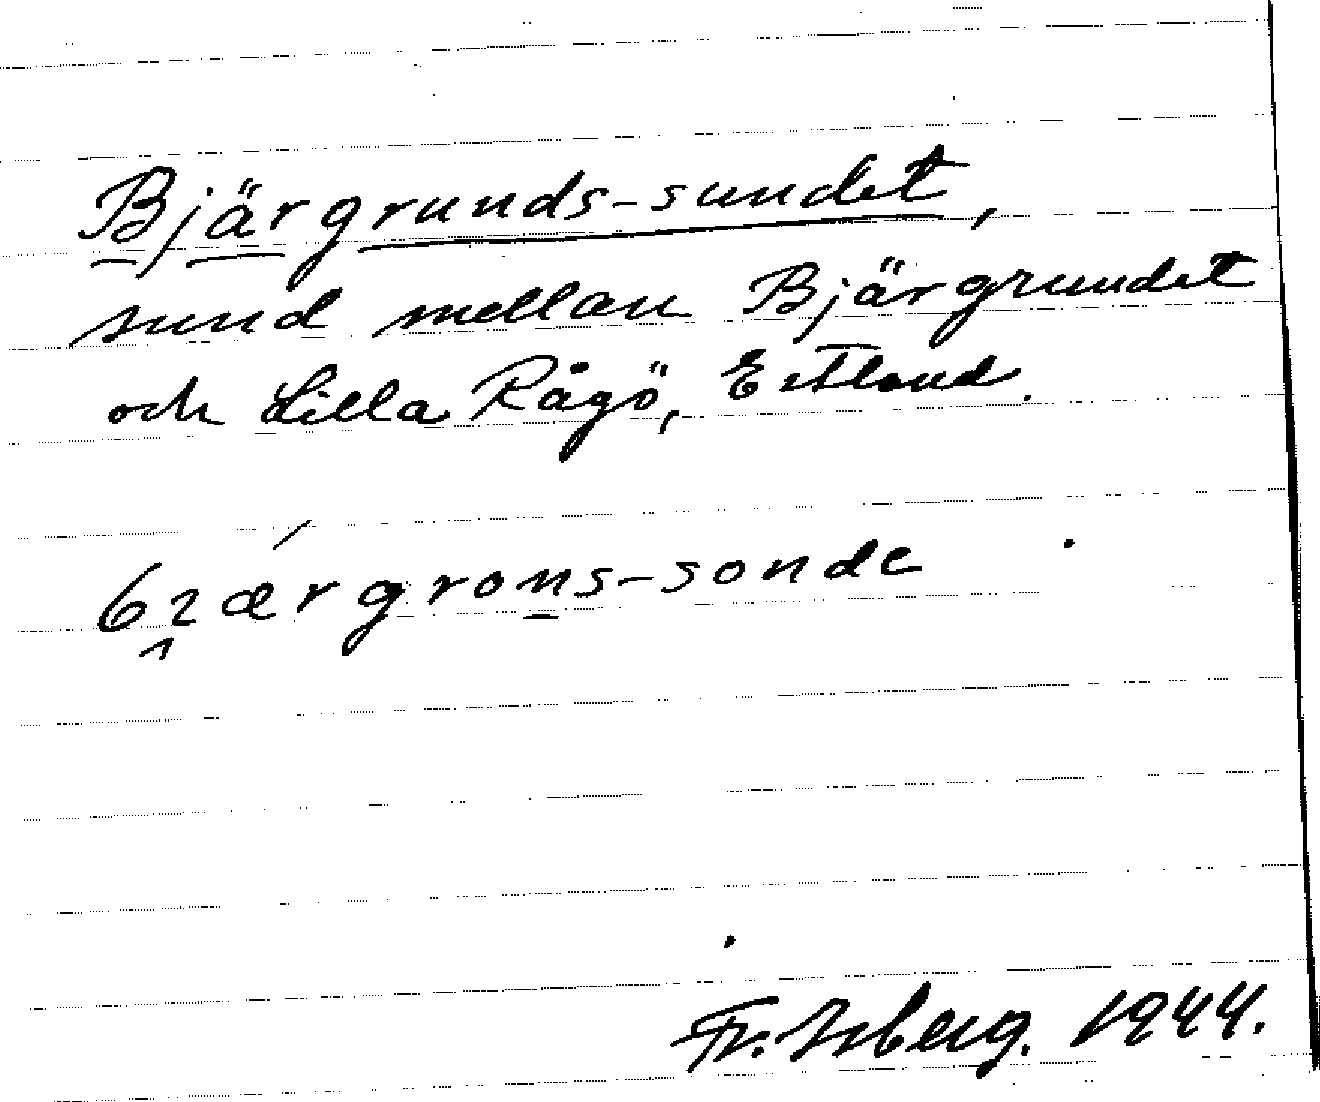 Bjärgrunds-sundet,
sund mellan Bjärgrundet
och Lilla Rågö, Estland.
bɩærgrons-sonde
Fr. Isberg. 1944.